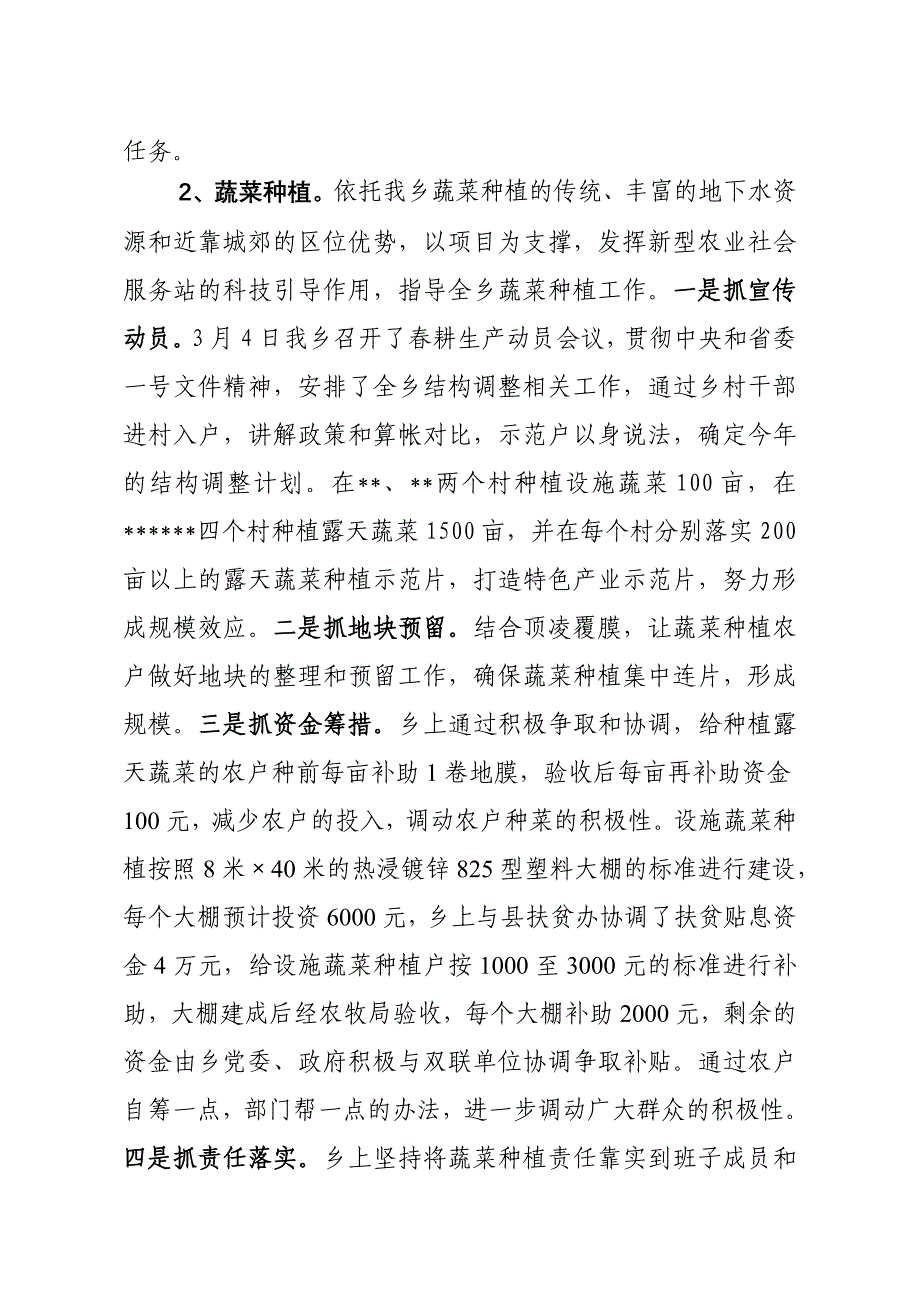 任务。
2、蔬菜种植。依托我乡蔬菜种植的传统、丰富的地下水资
源和近靠城郊的区位优势，以项目为支撑，发挥新型农业社会
服务站的科技引导作用，指导全乡蔬菜种植工作。一是抓宣传
动员。3月4日我乡召开了春耕生产动员会议，贯彻中央和省委
一号文件精神，安排了全乡结构调整相关工作，通过乡村干部
进村入户，讲解政策和算帐对比，示范户以身说法，确定今年
的结构调整计划。在**、**两个村种植设施蔬菜100亩，在
******四个村种植露天蔬菜1500亩，并在每个村分别落实200
亩以上的露天蔬菜种植示范片，打造特色产业示范片，努力形
成规模效应。二是抓地块预留。结合顶凌覆膜，让蔬菜种植农
户做好地块的整理和预留工作，确保蔬菜种植集中连片，形成
规模。三是抓资金筹措。乡上通过积极争取和协调，给种植露
天蔬菜的农户种前每亩补助1卷地膜，验收后每亩再补助资金
100元，减少农户的投入，调动农户种菜的积极性。设施蔬菜种
植按照8米×40米的热浸镀锌825型塑料大棚的标准进行建设，
每个大棚预计投资6000元，乡上与县扶贫办协调了扶贫贴息资
金4万元，给设施蔬菜种植户按1000至3000元的标准进行补
助，大棚建成后经农牧局验收，每个大棚补助2000元，剩余的
资金由乡党委、政府积极与双联单位协调争取补贴。通过农户
自筹一点，部门帮一点的办法，进一步调动广大群众的积极性。
四是抓责任落实。乡上坚持将蔬菜种植责任靠实到班子成员和